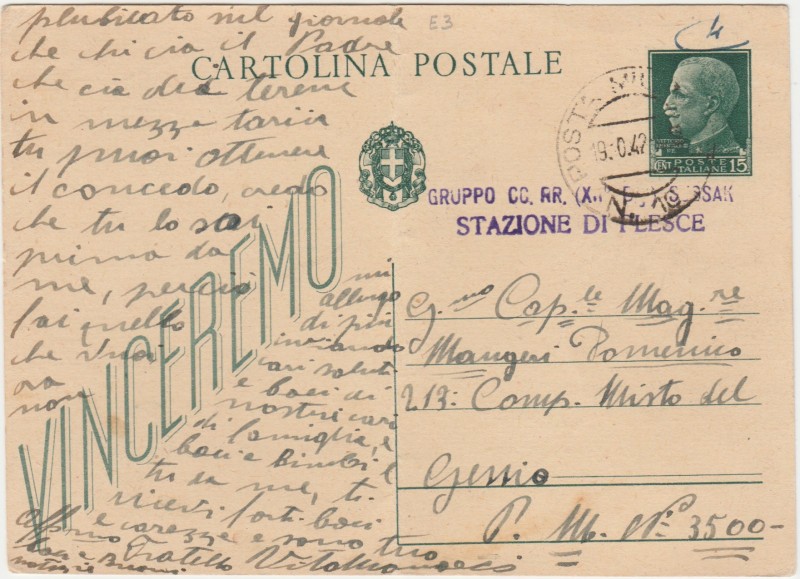 plublicato nel giornale
che chi cia il Padre
che cia dea terene
in mezza taria
tu puoi ottenere
il concedo, credo
che tu lo sai
prima da
me, perciò
fai quello
che vuoi
ora
non
mi
allungo
di piu
inviando
cari saluti
e baci di
nostri cari
di famiglia, e
baci e Bimbi
tu da me, ti
ricevi forti baci
e carezze e sono tuo
Fratello Vito
E3
4
CARTOLINA POSTALE
VINCEREMO
POSTA MIL
19. 0.42
N. 
POSTE
ITALIANE
CENT. 15
GRUPPO CC. RR.
STAZIONE DI PLESCE
G.mo Cap.le Mag.re
Mangeri Domenico
213: Comp. Misto del
Genio
P. M. No 3500-